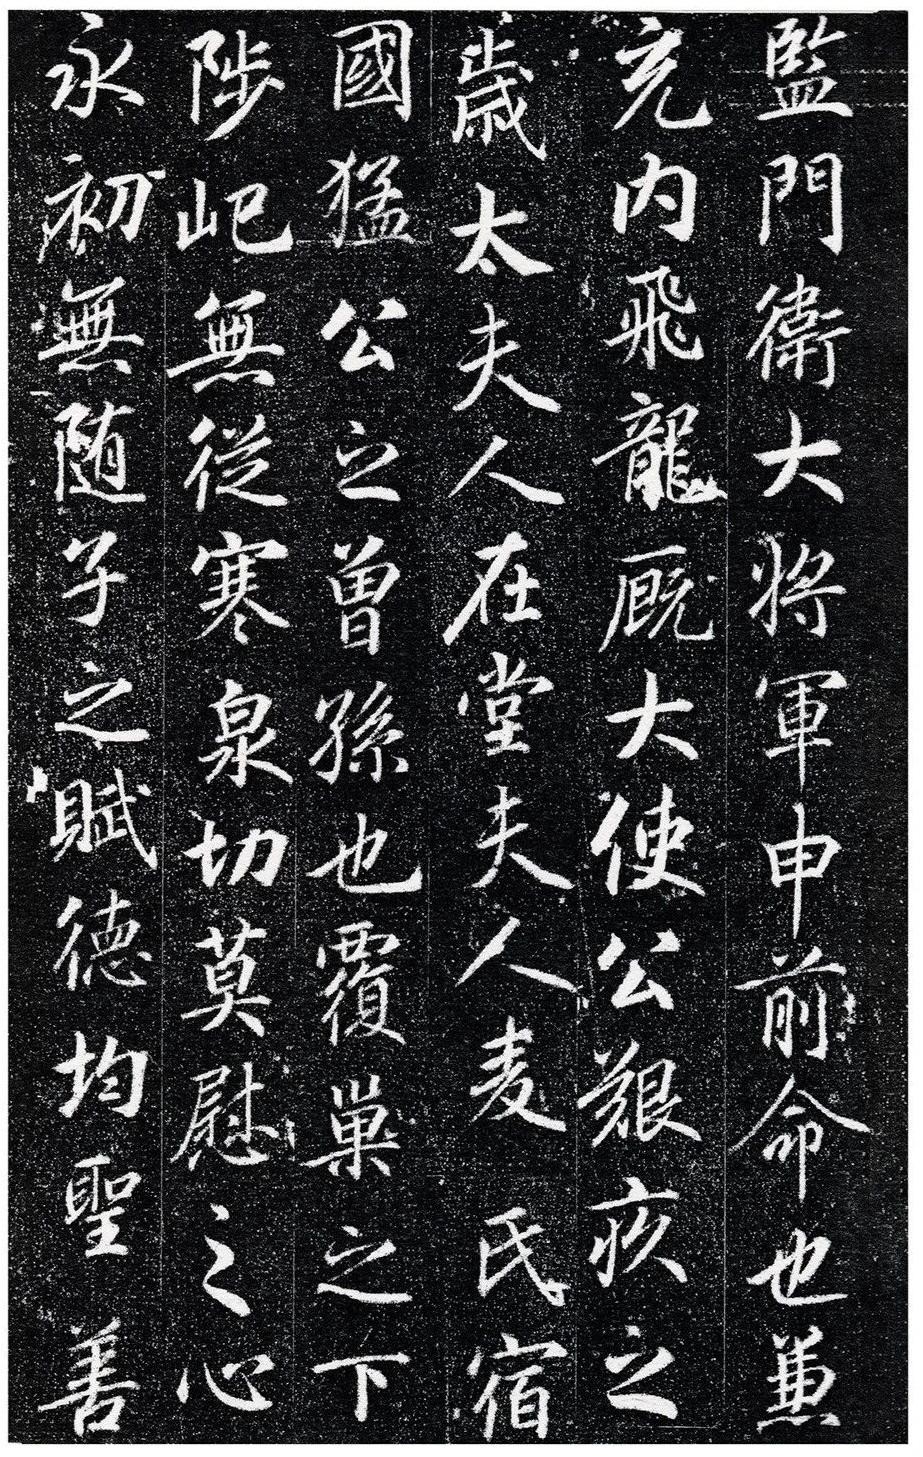 監門衛大將軍申前命也兼
充内飛龍厩大使公艱疚之
歳太夫人在堂夫人麦氏宿
國猛公之曽孫也覆巢之下
陟屺無從寒泉切莫慰之心
永初無随子之賦德均聖善